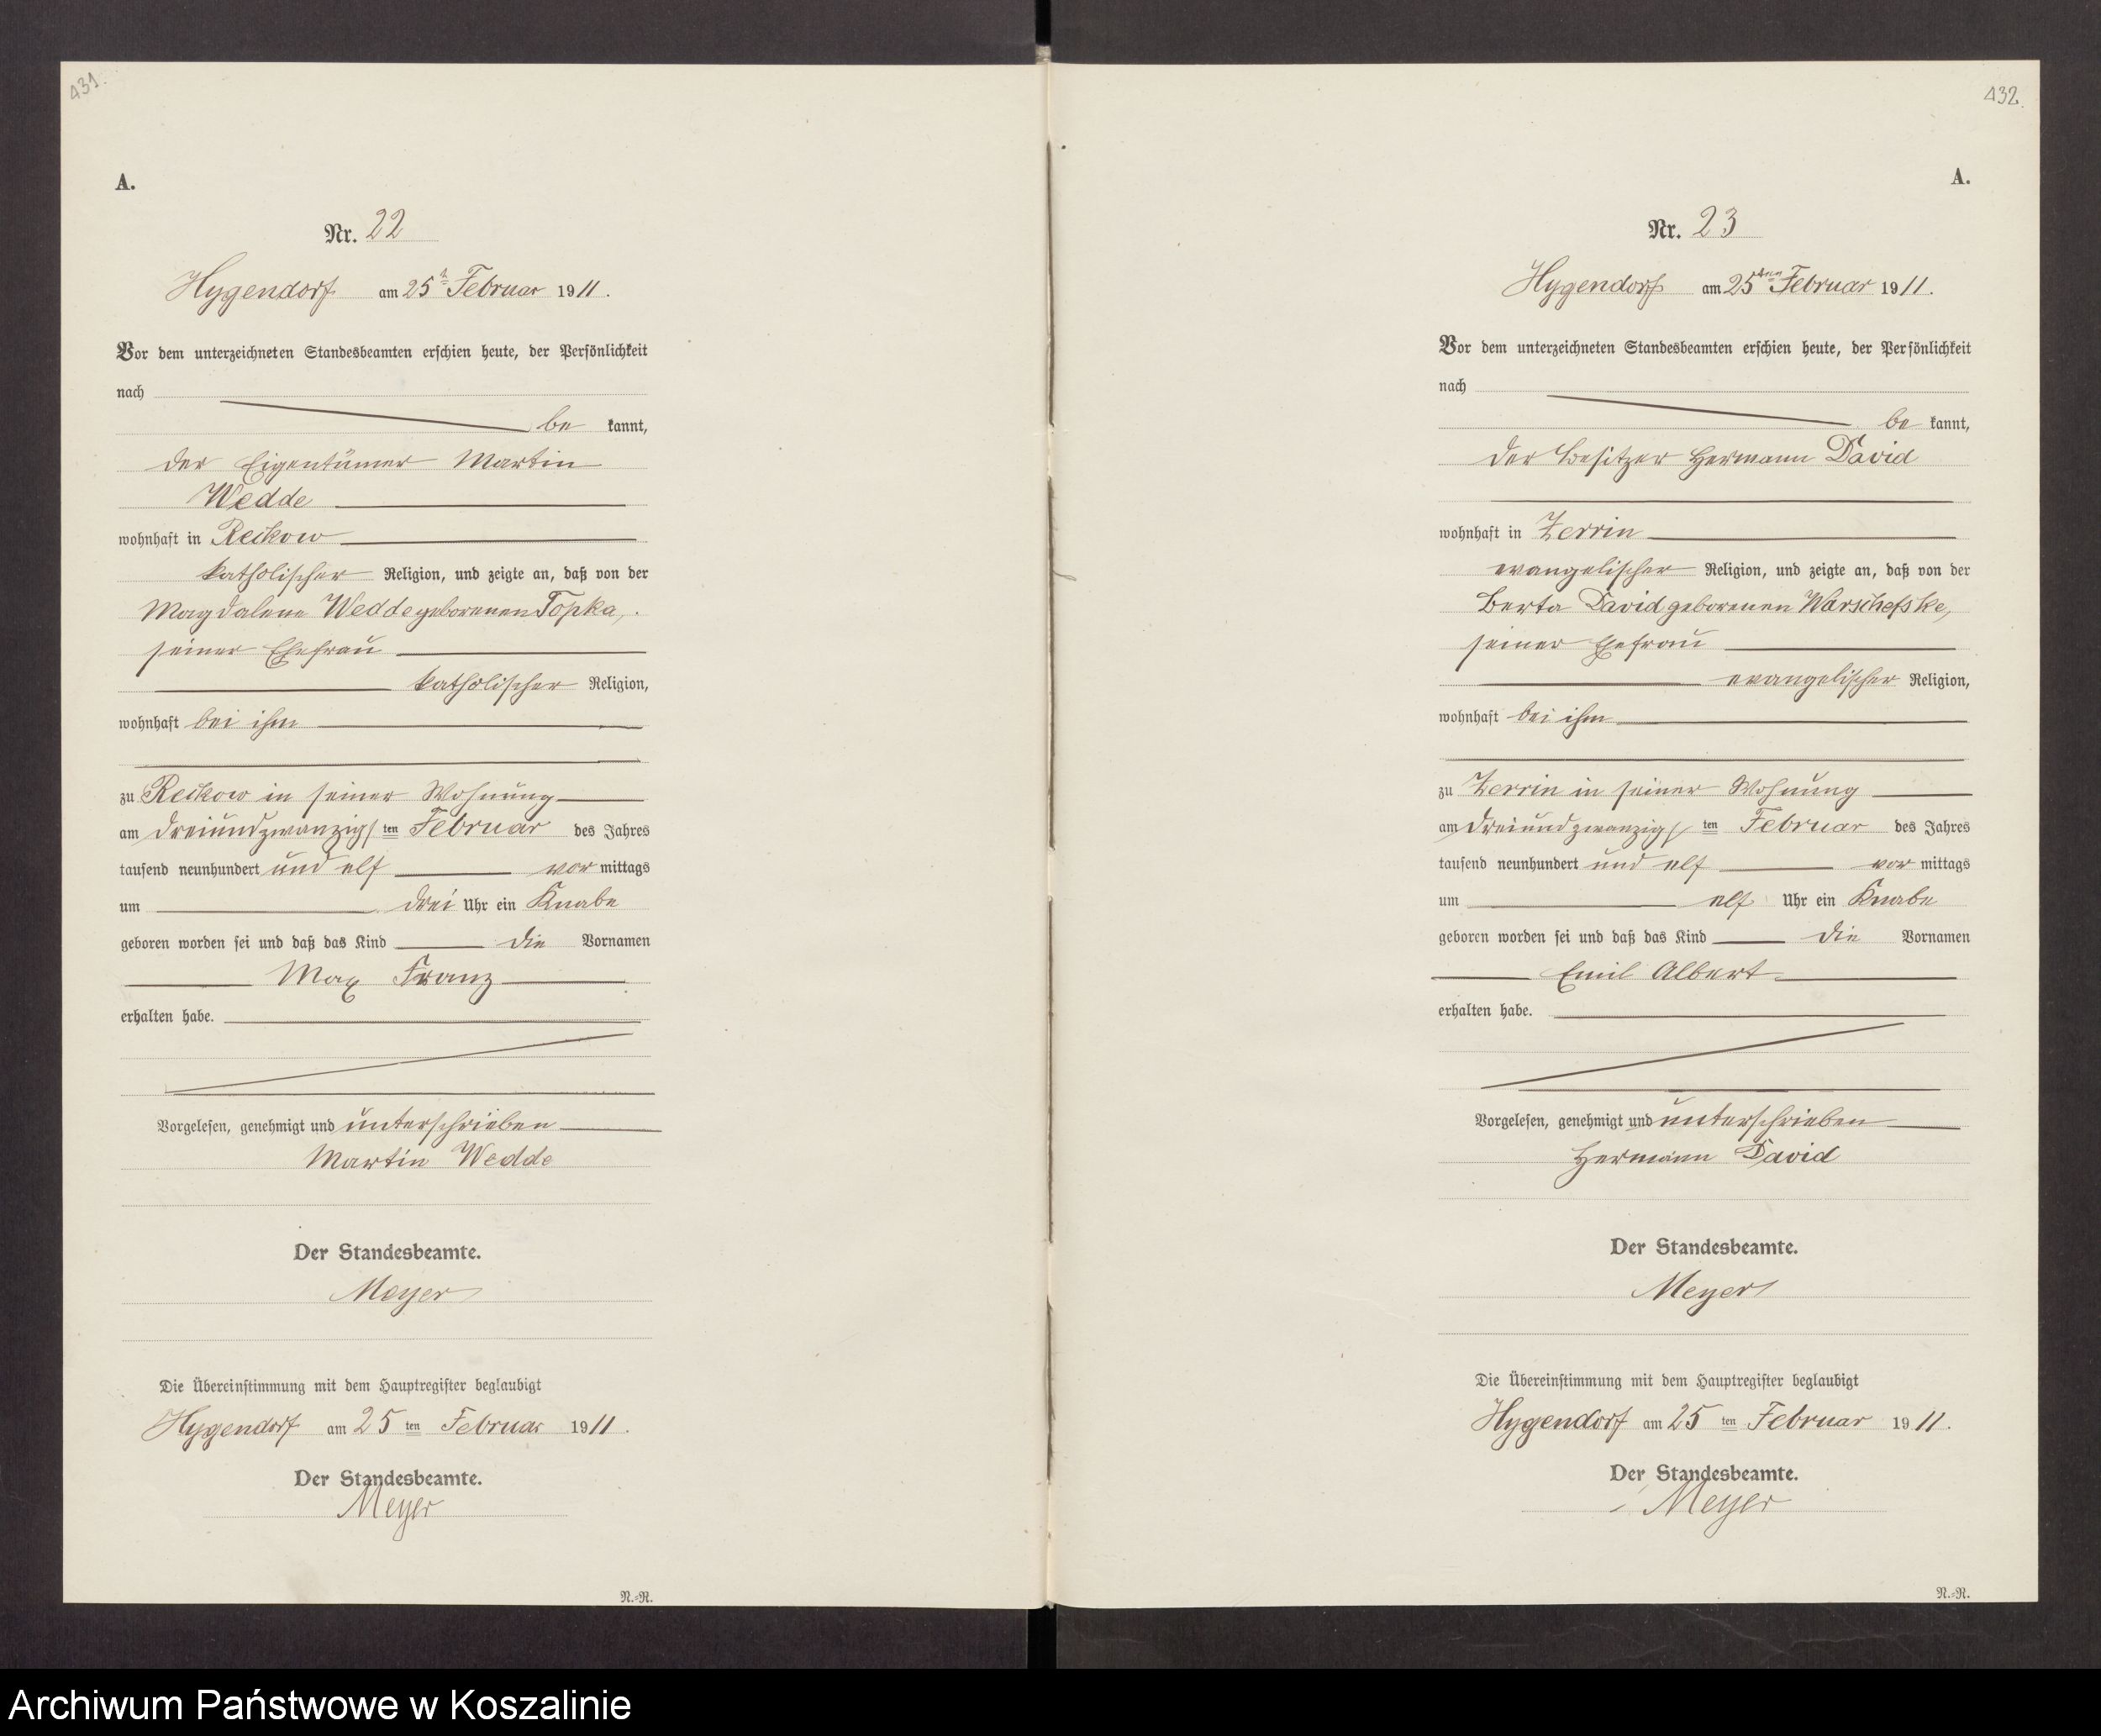 431.
A.
Nr. 22
Hygendorf am 25t Februar 1911.
Vor dem unterzeichneten Standesbeamten erschien heute, der Persönlichkeit
nach
be kannt,
der Eigentümer Martin
Wedde
wohnhaft in Reckow
katholischer Religion, und zeigte an, daß von der
Magdalene Wedde geborenen Topka,
seiner Ehefrau
katholischer Religion,
wohnhaft bei ihm
zu Reckow in seiner Wohnung
am dreiundzwanzigsten Februar des Jahres
tausend neunhundert und elf vor mittags
um drei Uhr ein Knabe
geboren worden sei und daß das Kind die Vornamen
Max Franz
erhalten habe.
Vorgelesen, genehmigt und unterschrieben
Martin Wedde
Der Standesbeamte.
Meyer
Die Übereinstimmung mit dem Hauptregister beglaubigt
Hygendorf am 25 ten Februar 1911.
Der Standesbeamte.
Meyer
N.-R.
432.
A.
Nr. 23
Hygendorf am 25ten Februar 1911.
Vor dem unterzeichneten Standesbeamten erschien heute, der Persönlichkeit
nach
be kannt,
der Besitzer Hermann David
wohnhaft in Zerrin
evangelischer Religion, und zeigte an, daß von der
Berta David geborenen Warschefske,
seiner Ehefrau
evangelischer Religion,
wohnhaft bei ihm
zu Zerrin in seiner Wohnung
am dreiundzwanzigsten Februar des Jahres
tausend neunhundert und elf vor mittags
um elf Uhr ein Knabe
geboren worden sei und daß das Kind die Vornamen
Emil Albert
erhalten habe.
Vorgelesen, genehmigt und unterschrieben
Hermann David
Der Standesbeamte.
Meyer
Die Übereinstimmung mit dem Hauptregister beglaubigt
Hygendorf am 25 ten Februar 1911.
Der Standesbeamte.
Meyer
N.-R.
Archiwum Państwowe w Koszalinie